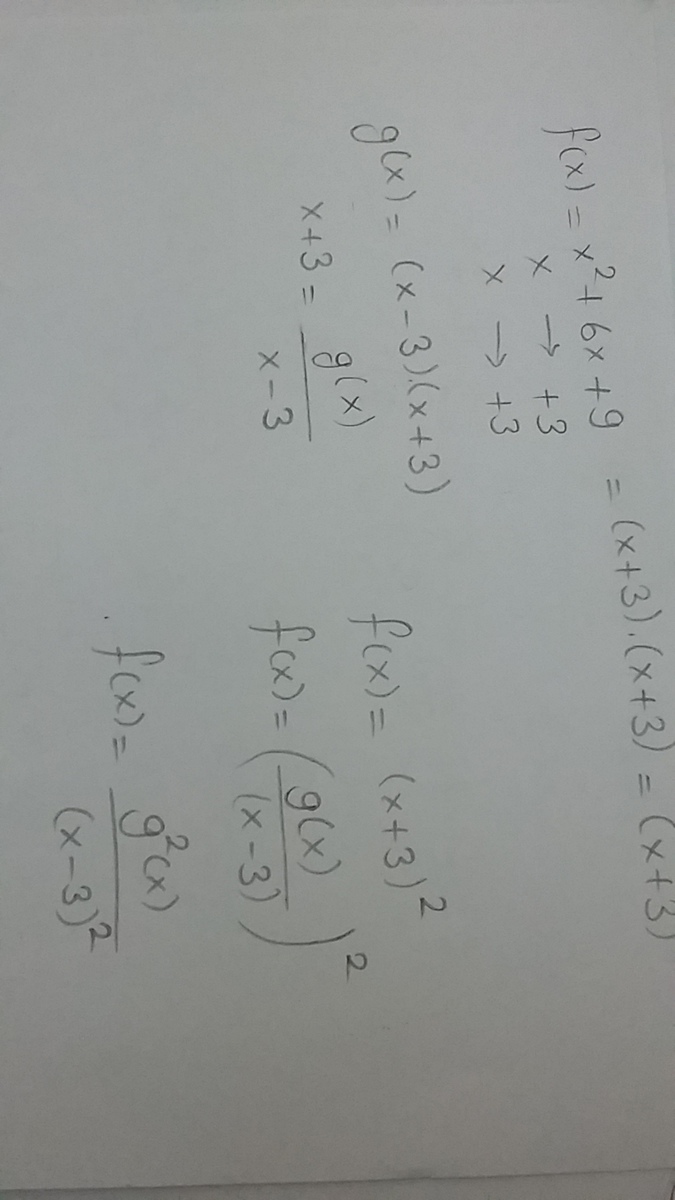 f(x) = x² + 6x + 9 = (x+3).(x+3) = (x+3)
x → +3
x → +3
g(x) = (x-3).(x+3)
x+3 = g(x) / x-3
f(x) = (x+3)²
f(x) = (g(x) / (x-3))²
. f(x) = g²(x) / (x-3)²